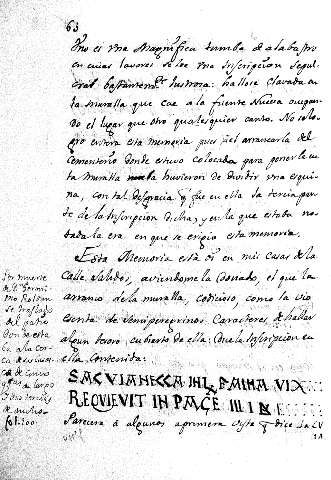 63
Uno es vna Magnifica tumba de alabastro
en cuias lavores se lee vna Inscripcion Sepul
cral bastantemte. Ilustrosa: hallose clavada en
la muralla que cae a la fuente Nueva ocupan
do el lugar que otro qualesquier canto. No se lo
gro entera esta memoria pues pr el arrancarla del
Cementerio donde estuvo colocada para ponerla en
la Muralla la huvieron de dividir vna esqui
na, con tal desgracia q fue en ella la tercia par
te de la Inscripcion dicha, y en la que estaba no
tada la era en que se erigio esta memoria.
Esta Memoria està oi en mi casas de la
Calle Salados, aviendome la donado, el que la
arranco de la muralla, codicioso, como la vio
esenta de Semiperegrinos Caracteres de hallar
algun tesoro cubierto de ella: Que la Inscripcion en
ella Contenida:
Por muerte
de Dn Germi
mo Roldan
se traslado
del patio
donde esta
ba a la
de largo
fol. 200.
SACVIANECCA IHL PAIMA VIX
REQVIEVIT IN PACE III IN
Parecera a algunos aprimera vista q dice SaCV
IA